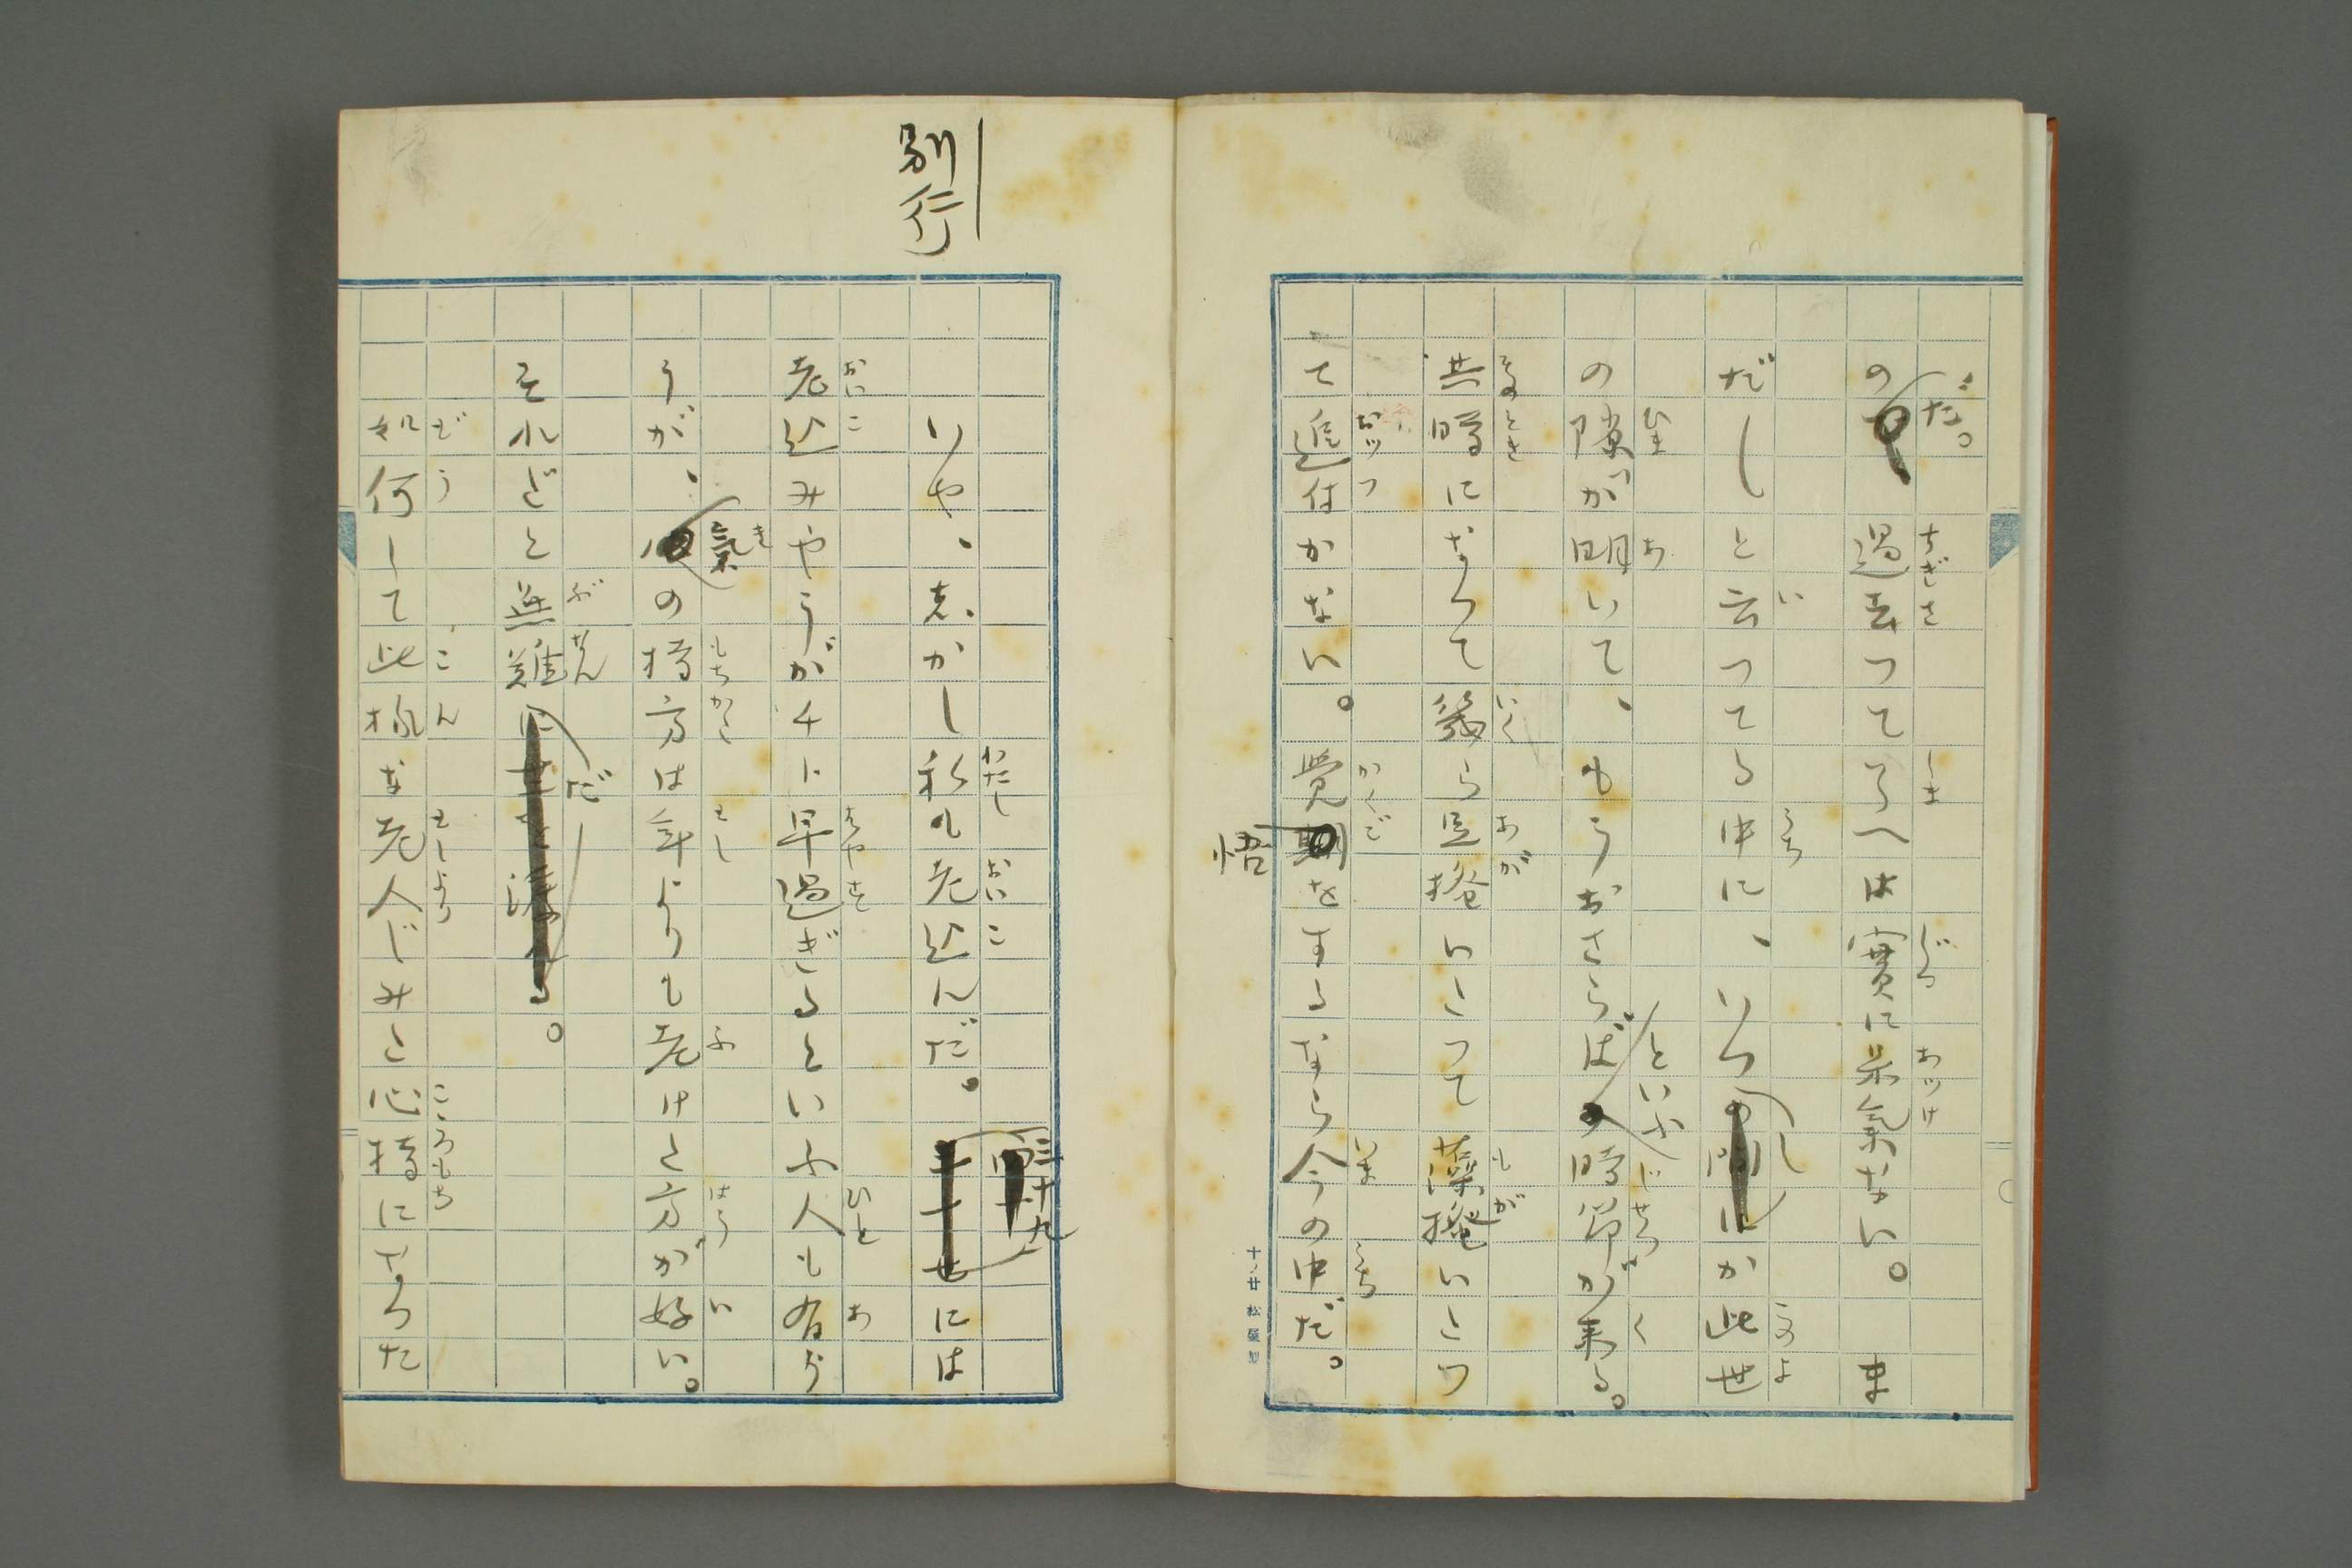 のだ。過去つてうへは實に呆氣ない。ま
だしと云つてる中に、いつしか此世
の隙が明いて、もうおさらばといふ時節が来る。
其時になつて幾ら足掻いたつて藻掻いたつ
て追付かない。覺悟をするなら今の中だ。
いや、しかし私も老込んだ。三十九には
老込みやうがチト早過ぎるといふ人も有ら
うが、氣の持方は年よりも老けた方が好い。
それだと無難だ。
如何して此様な老人じみた心持になつた
別行
十ノ廿 松屋製